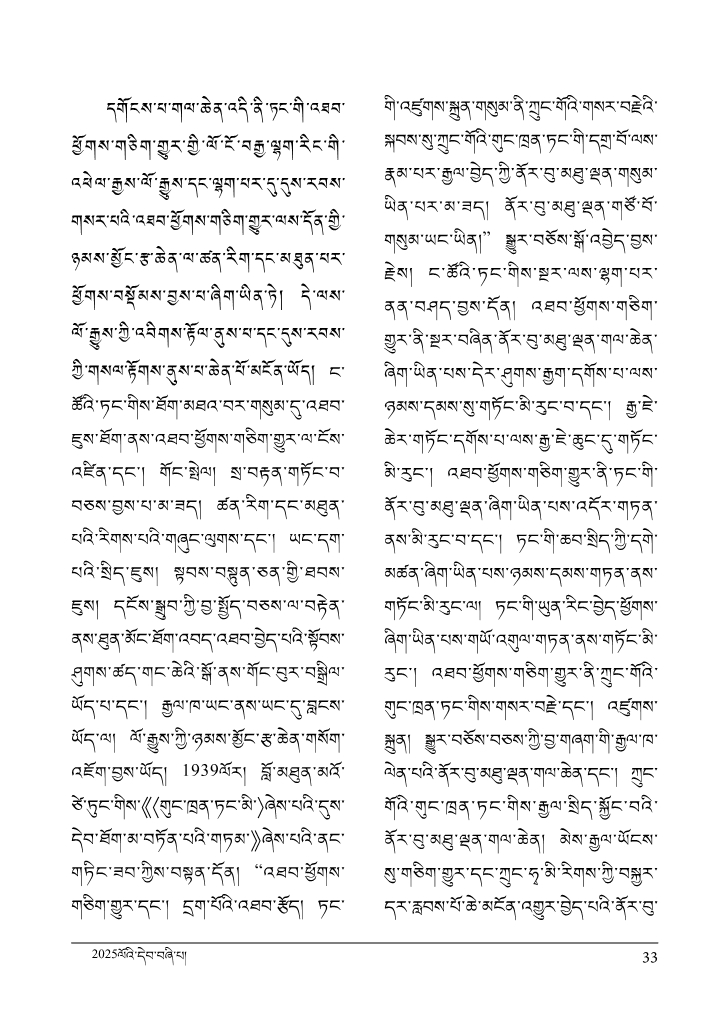 དགོངས་པ་གལ་ཆེན་འདི་ནི་ཏང་གི་འཐབ་
ཕྱོགས་གཅིག་གྱུར་གྱི་ལོ་ངོ་བརྒྱ་ལྷག་རིང་གི་
འཕེལ་རྒྱས་ལོ་རྒྱུས་དང་ལྷག་པར་དུ་དུས་རབས་
གསར་པའི་འཐབ་ཕྱོགས་གཅིག་གྱུར་ལས་དོན་གྱི་
ཉམས་མྱོང་རྩ་ཆེན་ལ་ཚན་རིག་དང་མཐུན་པར་
ཕྱོགས་བསྡོམས་བྱས་པ་ཞིག་ཡིན་ཏེ། དེ་ལས་
ལོ་རྒྱུས་ཀྱི་འབིགས་རྟོལ་ནུས་པ་དང་དུས་རབས་
ཀྱི་གསལ་རྟོགས་ནུས་པ་ཆེན་པོ་མངོན་ཡོད། ང་
ཚོའི་ཏང་གིས་ཐོག་མཐའ་བར་གསུམ་དུ་འཐབ་
ཇུས་ཐོག་ནས་འཐབ་ཕྱོགས་གཅིག་གྱུར་ལ་ངོས་
འཛིན་དང་། གོང་སྤེལ། སྲ་བརྟན་གཏོང་བ་
བཅས་བྱས་པ་མ་ཟད། ཚན་རིག་དང་མཐུན་
པའི་རིགས་པའི་གཞུང་ལུགས་དང་། ཡང་དག་
པའི་སྲིད་ཇུས། སྟབས་བསྟུན་ཅན་གྱི་ཐབས་
ཇུས། དངོས་སྒྲུབ་ཀྱི་བྱ་སྤྱོད་བཅས་ལ་བརྟེན་
ནས་ཐུན་མོང་ཐོག་འབད་འཐབ་བྱེད་པའི་སྟོབས་
ཤུགས་ཚད་གང་ཆེའི་སྒོ་ནས་གོང་བུར་བསྒྲིལ་
ཡོད་པ་དང་། རྒྱལ་ཁ་ཡང་ནས་ཡང་དུ་བླངས་
ཡོད་ལ། ལོ་རྒྱུས་ཀྱི་ཉམས་མྱོང་རྩ་ཆེན་གསོག་
འཇོག་བྱས་ཡོད། 1939ལོར། བློ་མཐུན་མའོ་
ཙེ་ཏུང་གིས་《〈གུང་ཁྲན་ཏང་མི་〉ཞེས་པའི་དུས་
དེབ་ཐོག་མ་བཏོན་པའི་གཏམ་》ཞེས་པའི་ནང་
གཏིང་ཟབ་ཀྱིས་བསྟན་དོན། “འཐབ་ཕྱོགས་
གཅིག་གྱུར་དང་། དྲག་པོའི་འཐབ་རྩོད། ཏང་
གི་འཛུགས་སྐྲུན་གསུམ་ནི་ཀྲུང་གོའི་གསར་བརྗེའི་
སྐབས་སུ་ཀྲུང་གོའི་གུང་ཁྲན་ཏང་གི་དགྲ་བོ་ལས་
རྣམ་པར་རྒྱལ་བྱེད་ཀྱི་ནོར་བུ་མཐུ་ལྡན་གསུམ་
ཡིན་པར་མ་ཟད། ནོར་བུ་མཐུ་ལྡན་གཙོ་བོ་
གསུམ་ཡང་ཡིན།” སྒྱུར་བཅོས་སྒོ་འབྱེད་བྱས་
རྗེས། ང་ཚོའི་ཏང་གིས་སྔར་ལས་ལྷག་པར་
ནན་བཤད་བྱས་དོན། འཐབ་ཕྱོགས་གཅིག་
གྱུར་ནི་སྔར་བཞིན་ནོར་བུ་མཐུ་ལྡན་གལ་ཆེན་
ཞིག་ཡིན་པས་དེར་ཤུགས་རྒྱག་དགོས་པ་ལས་
ཉམས་དམས་སུ་གཏོང་མི་རུང་བ་དང་། རྒྱ་ཇེ་
ཆེར་གཏོང་དགོས་པ་ལས་རྒྱ་ཇེ་ཆུང་དུ་གཏོང་
མི་རུང་། འཐབ་ཕྱོགས་གཅིག་གྱུར་ནི་ཏང་གི་
ནོར་བུ་མཐུ་ལྡན་ཞིག་ཡིན་པས་འདོར་གཏན་
ནས་མི་རུང་བ་དང་། ཏང་གི་ཆབ་སྲིད་ཀྱི་དགེ་
མཚན་ཞིག་ཡིན་པས་ཉམས་དམས་གཏན་ནས་
གཏོང་མི་རུང་ལ། ཏང་གི་ཡུན་རིང་བྱེད་ཕྱོགས་
ཞིག་ཡིན་པས་གཡོ་འགུལ་གཏན་ནས་གཏོང་མི་
རུང་། འཐབ་ཕྱོགས་གཅིག་གྱུར་ནི་ཀྲུང་གོའི་
གུང་ཁྲན་ཏང་གིས་གསར་བརྗེ་དང་། འཛུགས་
སྐྲུན། སྒྱུར་བཅོས་བཅས་ཀྱི་བྱ་གཞག་གི་རྒྱལ་ཁ་
ལེན་པའི་ནོར་བུ་མཐུ་ལྡན་གལ་ཆེན་དང་། ཀྲུང་
གོའི་གུང་ཁྲན་ཏང་གིས་རྒྱལ་སྲིད་སྐྱོང་བའི་
ནོར་བུ་མཐུ་ལྡན་གལ་ཆེན། མེས་རྒྱལ་ཡོངས་
སུ་གཅིག་གྱུར་དང་ཀྲུང་ཧྭ་མི་རིགས་ཀྱི་བསྐྱར་
དར་རླབས་པོ་ཆེ་མངོན་འགྱུར་བྱེད་པའི་ནོར་བུ་
2025ལོའི་དེབ་བཞི་པ།
33